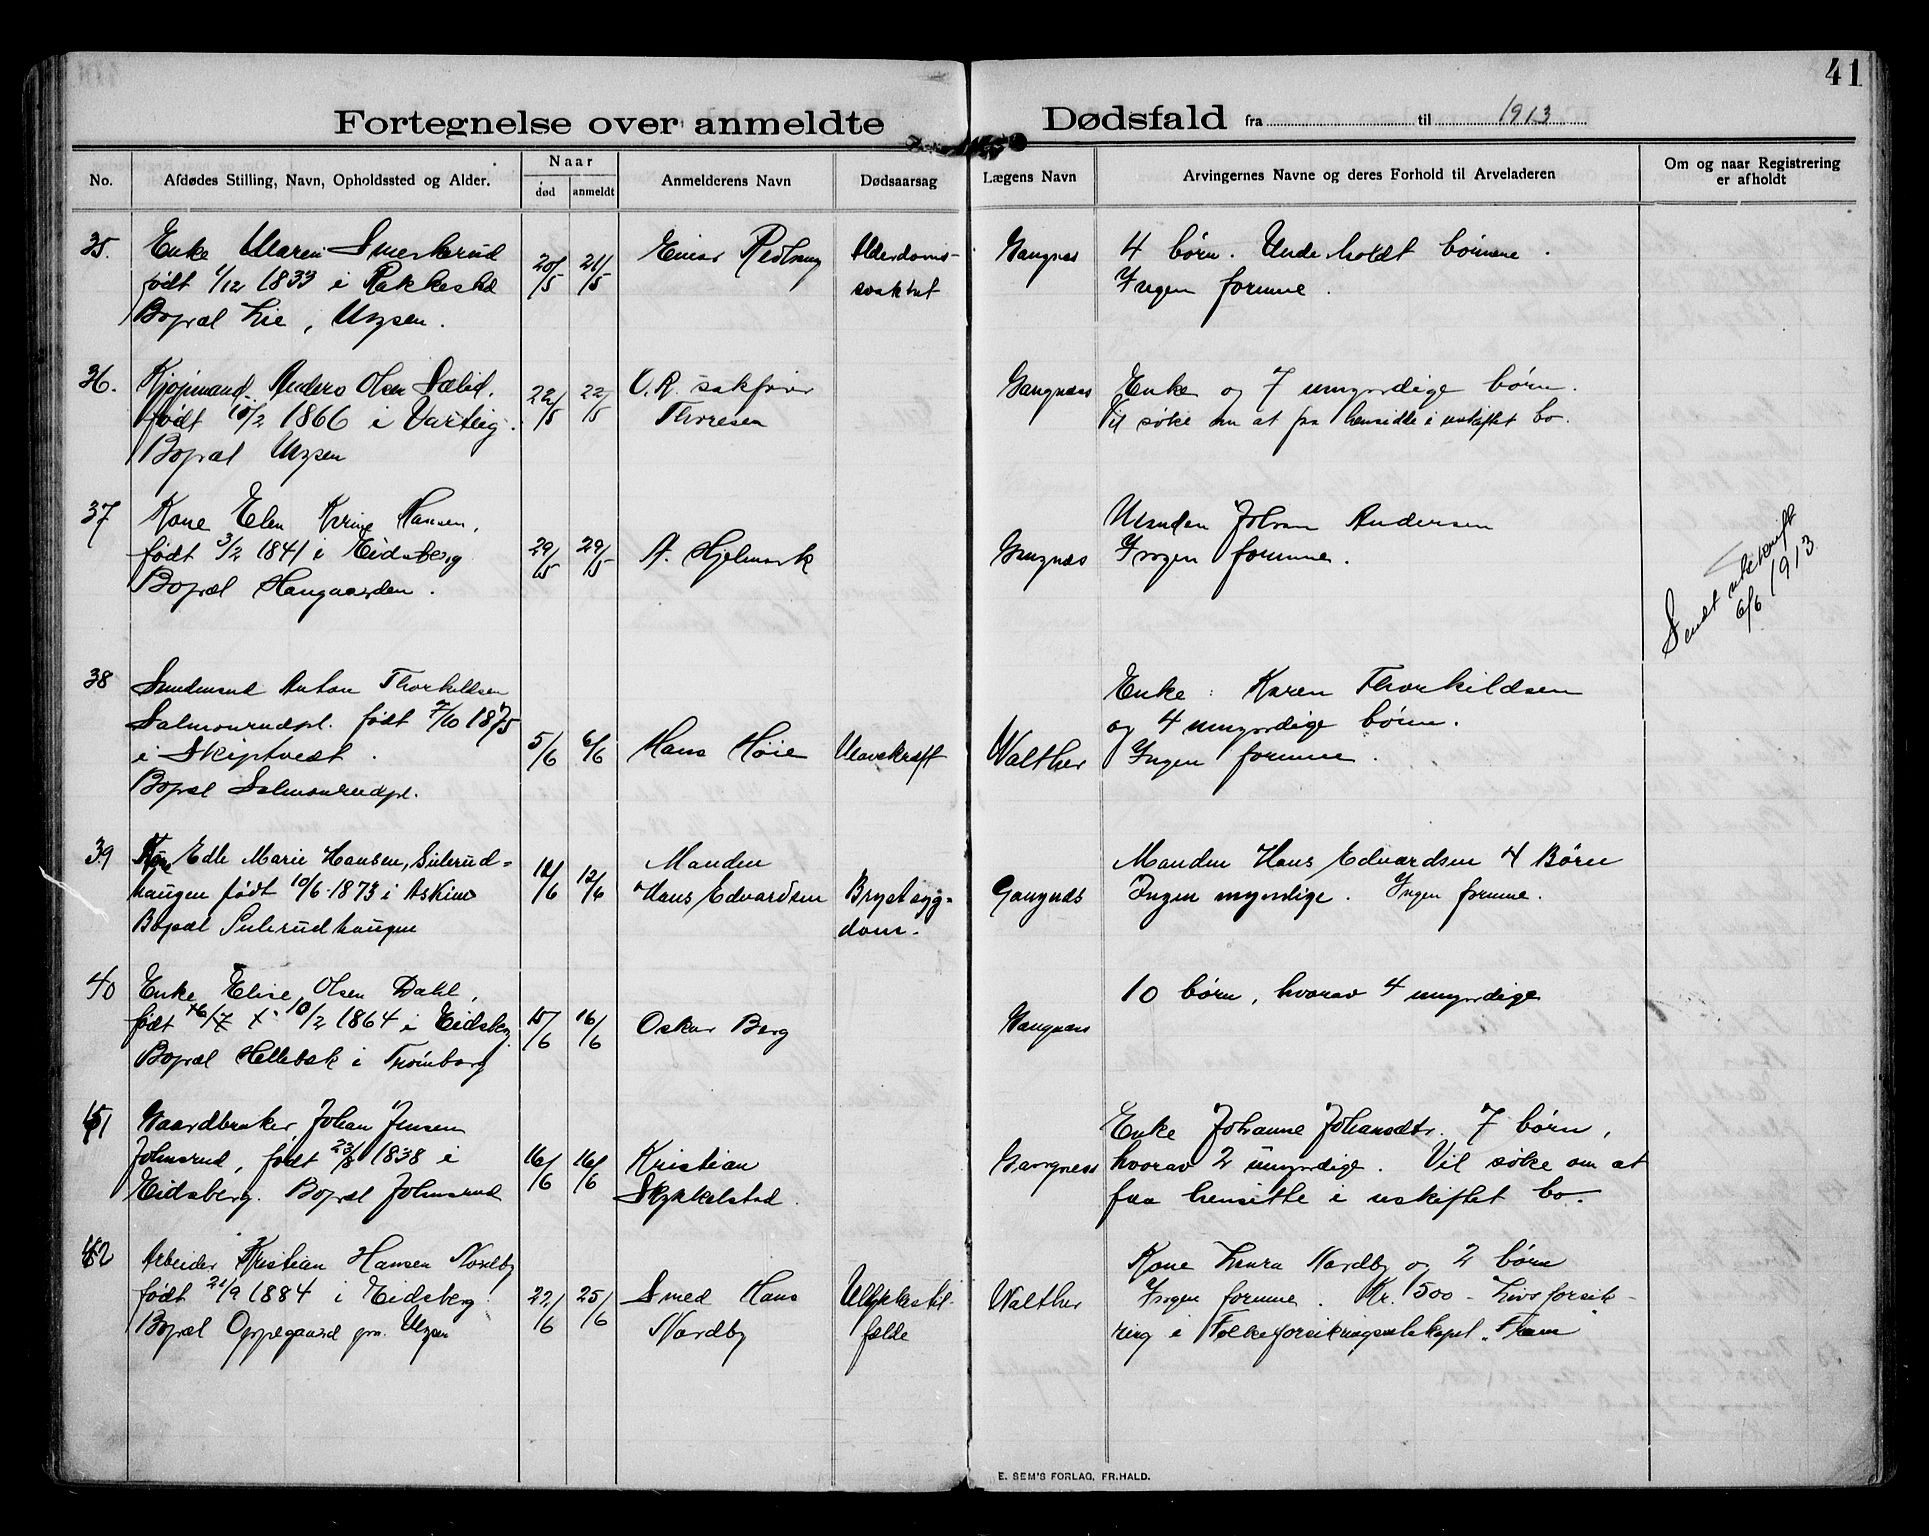 41
Fortegnelse over anmeldte Dødsfald fra til 1913
No.
Afdødes Stilling, Navn, Opholdssted og Alder.
Naar
død
anmeldt
Anmelderens Navn
Dødsaarsag
Lægens Navn
Arvingernes Navne og deres Forhold til Arveladeren
Om og naar Registrering
er afholdt
35.
Enke Maren Smerkerud
født 1/12 1833 i Rakkestad
Bopæl Lie, Mysen.
20/5
21/5
Einar
Alderdoms-
svakhet
Gangnæs
4 børn. Underholdt børnene.
Ingen formue.
36.
Kjøpmand Anders Olsen Sælid.
født 10/2 1866 i Varteig.
Bopæl Mysen
22/5
22/5
O.R. sakfører
Thoresen
Gangnæs
Enke og 7 umyndige børn.
Vil søke om at faa hensidde i uskiftet bo.
37
Kone Elen Karine Hansen,
født 3/2 1841 i Eidsberg
Bopæl Haugaarden.
29/5
29/5
A. Hjelmark
Gangnæs
Manden Johan Andersen
Ingen formue.
Sendt utskrift
6/6 1913
38
Anton Thorkildsen
Salmonrudpl. født 7/10 1875
i Skiptvedt.
Bopæl Salmonrudpl.
5/6
6/6
Hans Høie
Mavekræft
Walther
Enke: Karen Thorkildsen
og 4 umyndige børn.
Ingen formue.
39
Kone Edle Marie Hansen, Sulerud=
haugen født 10/6 1873 i Askim
Bopæl Sulerudhaugen
12/6
12/6
Manden
Hans Edvardsen
Brystsyg=
dom.
Gangnæs
Manden Hans Edvardsen 4 Børn
Ingen myndige. Ingen formue.
40
Enke Elise Olsen Dahl,
født 10/2 1864 i Eidsberg
Bopæl Hellebæk i Trømborg
15/6
16/6
Oskar Berg
Gangnæs
10 børn, hvorav 4 umyndige
41
Gaardbruker Johan Jensen
Johnsrud, født 23/8 1838 i
Eidsberg. Bopæl Johnsrud
16/6
16/6
Kristian
Skykkelstad.
Gangnæs
Enke Johanne Johansdtr. 7 børn,
hvorav 2 umyndige. Vil søke om at
faa hensitte i uskiftet bo.
42
Arbeider Kristian Hansen Nordby
født 21/9 1884 i Eidsberg
Bopæl Oppegaard pr. Mysen
22/6
25/6
Smed Hans
Nordby
Ulykkestil-
fælde
Walther
Kone Laura Nordby og 2 børn
Ingen formue. Kr. 500 - Livsforsik-
ring i Folkeforsikringsselskapet "Fram"
E. SEM'S FORLAG, FR.HALD.